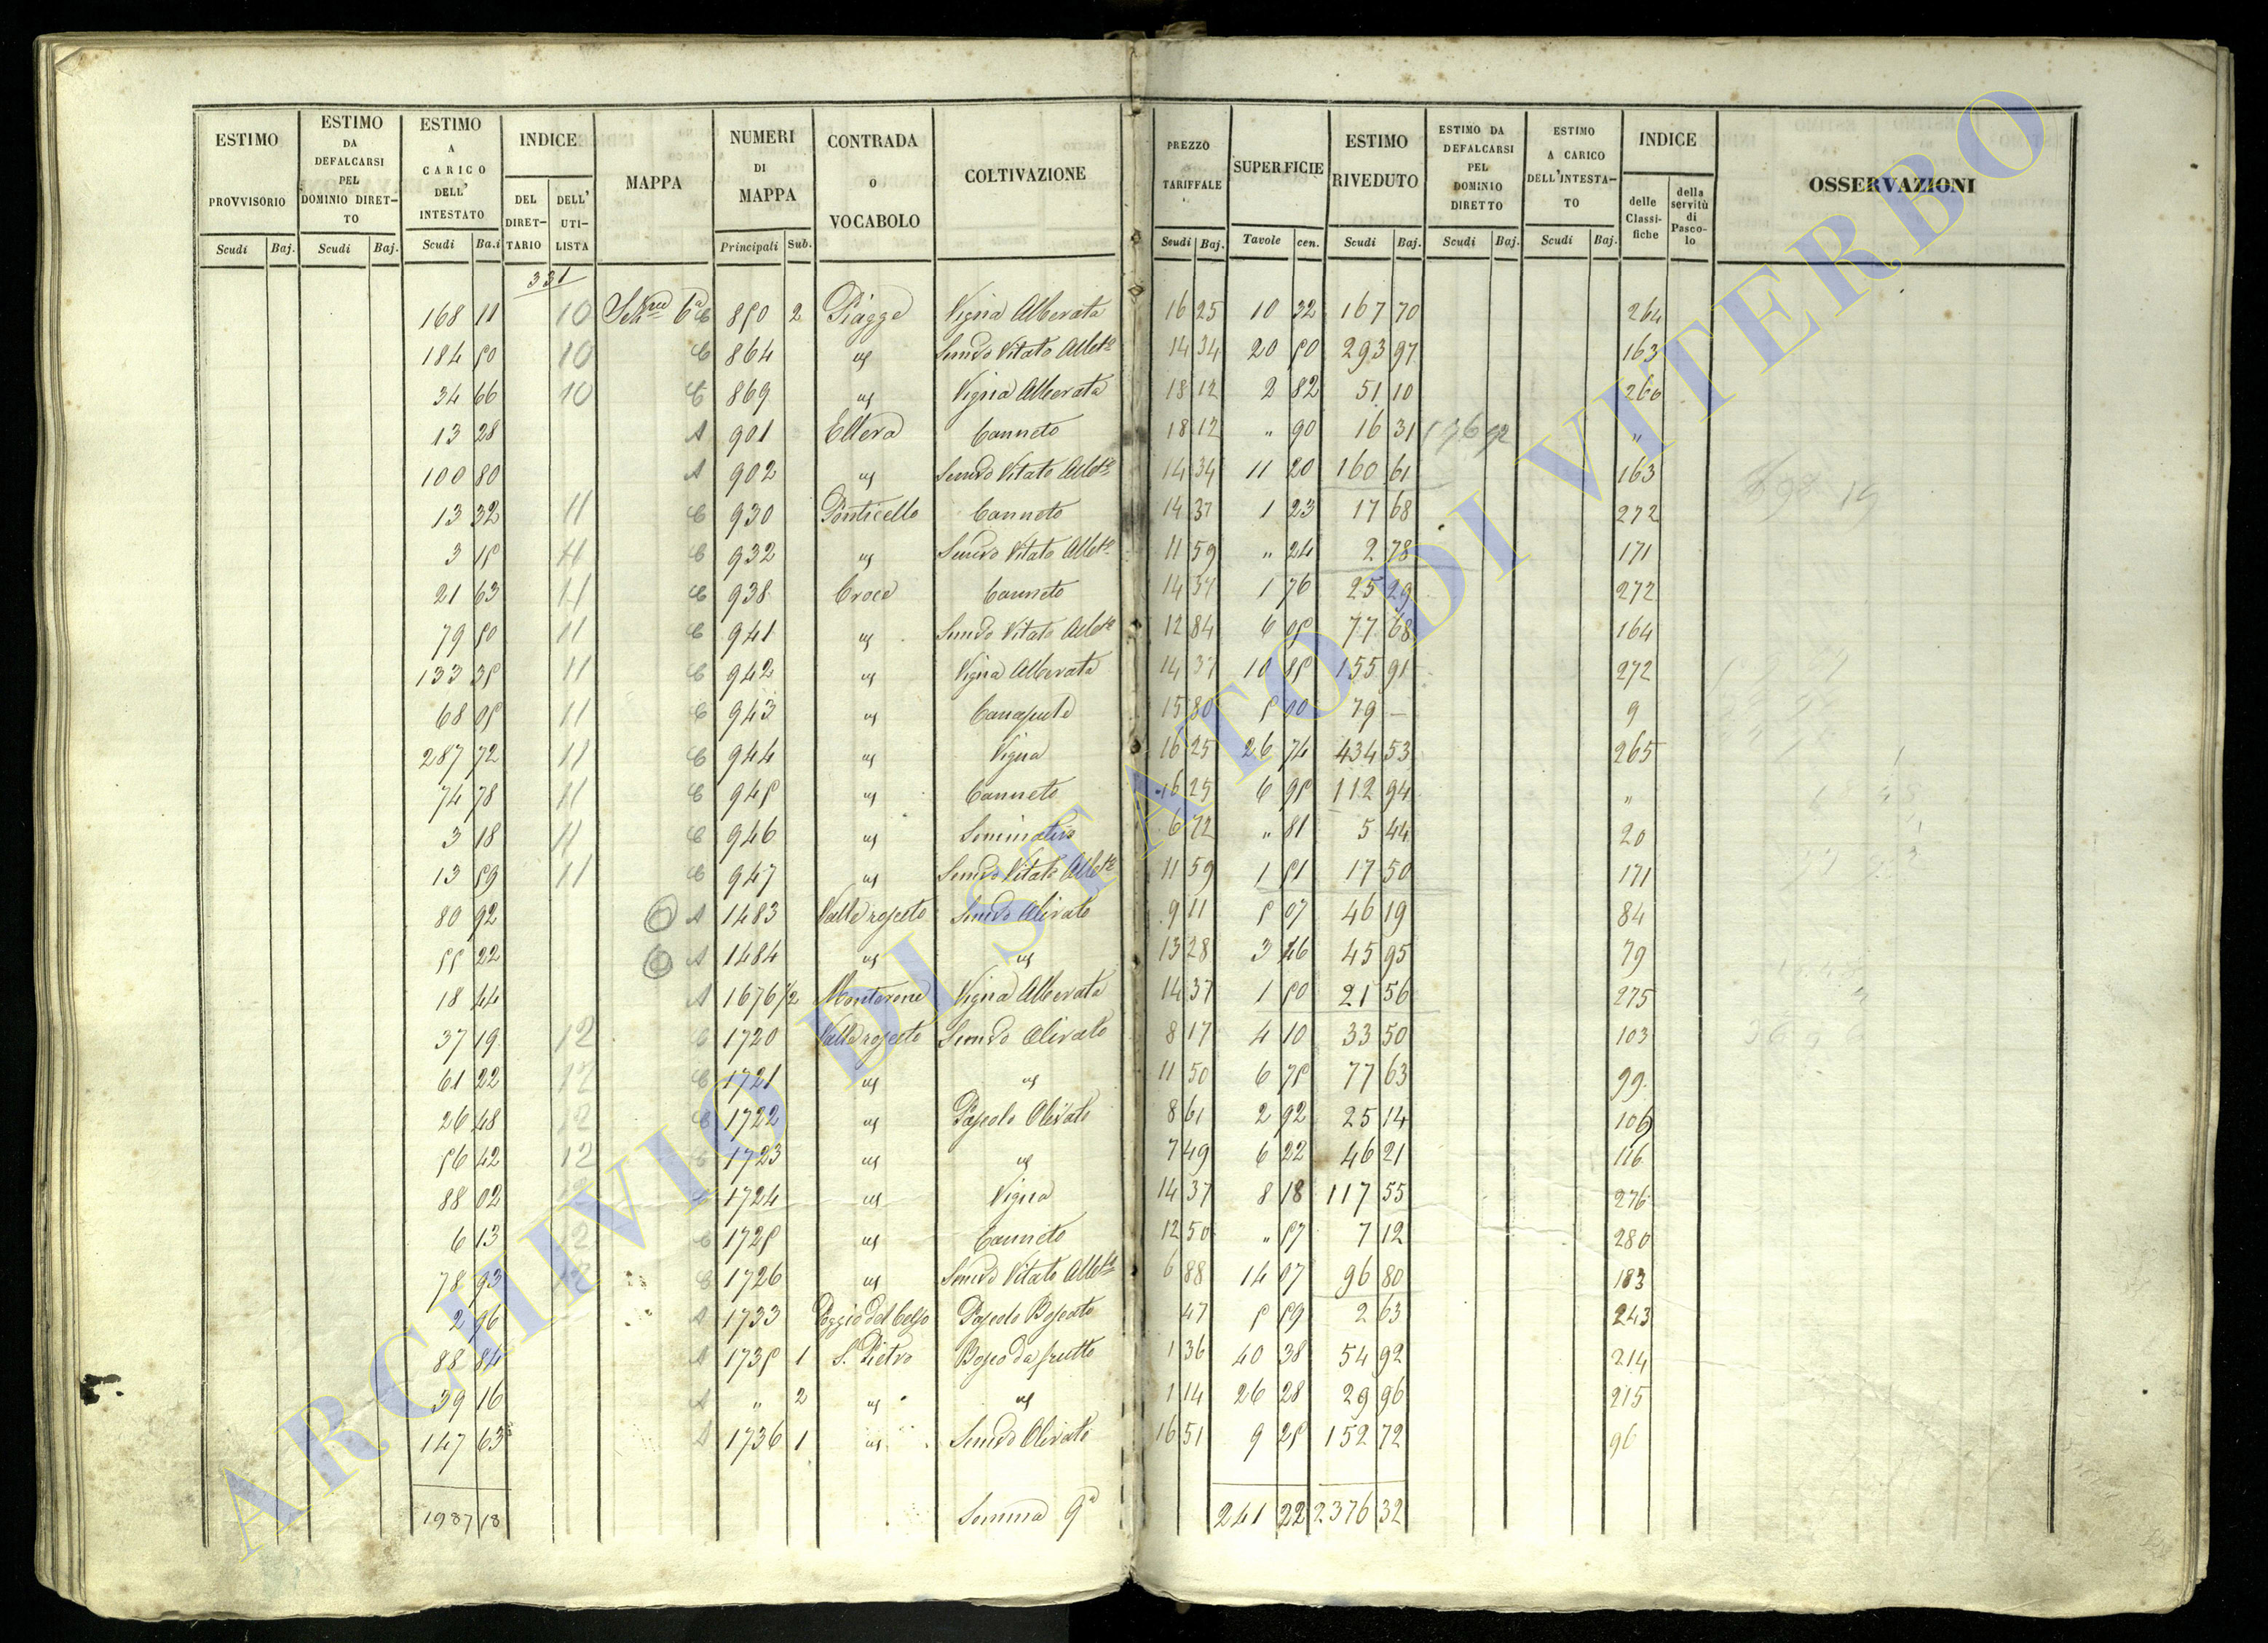 ESTIMO PROVVISORIO
ESTIMO DA DEFALCARSI PEL DOMINIO DIRETTO
ESTIMO A CARICO DELL' INTESTATO
INDICE
DEL DIRETTARIO
DELL' UTILISTA
MAPPA
NUMERI DI MAPPA
CONTRADA O VOCABOLO
COLTIVAZIONE
PREZZO O TARIFFALE
SUPERFICIE
ESTIMO RIVEDUTO
ESTIMO DA DEFALCARSI PEL DOMINIO DIRETTO
ESTIMO A CARICO DELL'INTESTATO
INDICE
delle Classifiche
della servitù di Pascolo
OSSERVAZIONI
Scudi Baj. Scudi Baj. Scudi Ba.i Principali Sub. Scudi Baj. Tavole cen. Scudi Baj. Scudi Baj. Scudi Baj.
331
168 11 10 6a C 850 2 Piagge Vigna Alberata 16 25 10 32 167 70 264
184 50 10 C 864 " Semvo Vitato Albto 14 34 20 50 293 97 163
34 66 10 C 869 " Vigna Alberata 18 12 2 82 51 10 260
13 28 A 901 Ellera Canneto 18 12 " 90 16 31 "
100 80 A 902 " Semvo Vitato Albto 14 34 11 20 160 61 163
13 32 11 C 930 Ponticello Canneto 14 37 1 23 17 68 272
3 15 11 C 932 " Semvo Vitato Albto 11 59 " 24 2 78 171
21 63 11 C 938 Croce Canneto 14 37 1 76 25 29 272
79 50 11 C 941 " Semvo Vitato Albto 12 84 6 05 77 68 164
133 35 11 C 942 " Vigna Alberata 14 37 10 85 155 91 272
68 05 11 C 943 " Canapule 15 80 5 00 79 — 9
287 72 11 C 944 " Vigna 16 25 26 74 434 53 265
74 78 11 C 945 " Canneto 16 25 6 95 112 94 "
3 18 11 C 946 " Seminativo 6 72 " 81 5 44 20
13 59 11 C 947 " Semvo Vitato Albto 11 59 1 51 17 50 171
80 92 A 1483 Valle rosceto Semvo Olivato 9 11 5 07 46 19 84
55 22 A 1484 " " 13 28 3 46 45 95 79
18 44 A 1676 1/2 Monterene Vigna Alberata 14 37 1 50 21 56 275
37 19 12 C 1720 Valle rosceto Semvo Olivato 8 17 4 10 33 50 103
61 22 12 C 1721 " " 11 50 6 75 77 63 99
26 48 12 C 1722 " Pascolo Olivato 8 61 2 92 25 14 106
56 42 12 C 1723 " " 7 49 6 22 46 21 116
88 02 12 C 1724 " Vigna 14 37 8 18 117 55 276
6 13 12 C 1725 " Canneto 12 50 " 57 7 12 280
78 93 12 C 1726 " Semvo Vitato Albto 6 88 14 07 96 80 183
2 96 A 1733 Poggio del Celso Pascolo Boscato 47 5 59 2 63 243
88 84 A 1735 1 S. Pietro Bosco da frutto 1 36 40 38 54 92 214
39 16 A " 2 " " 1 14 26 28 29 96 215
147 63 A 1736 1 " Semvo Olivato 16 51 9 25 152 72 96
1987 18 Somma 9a 241 22 2376 32
ARCHIVIO DI STATO DI VITERBO